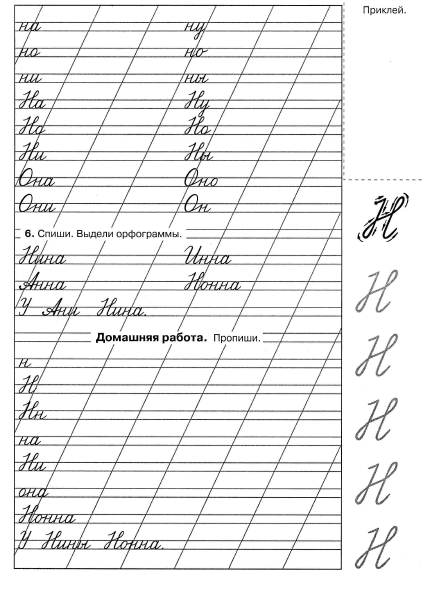 Приклей.
на ну
но но
ни ны
На Ну
На Но
Ни Ны
Она Оно
Они Он
6. Спиши. Выдели орфограммы.
Нина Инна
Анна Нонна
У Ани Нина.
Домашняя работа. Пропиши.
н
Н
Нн
на
Ни
она
Нонна
У Нины Нонна.
Н
Н
Н
Н
Н
Н